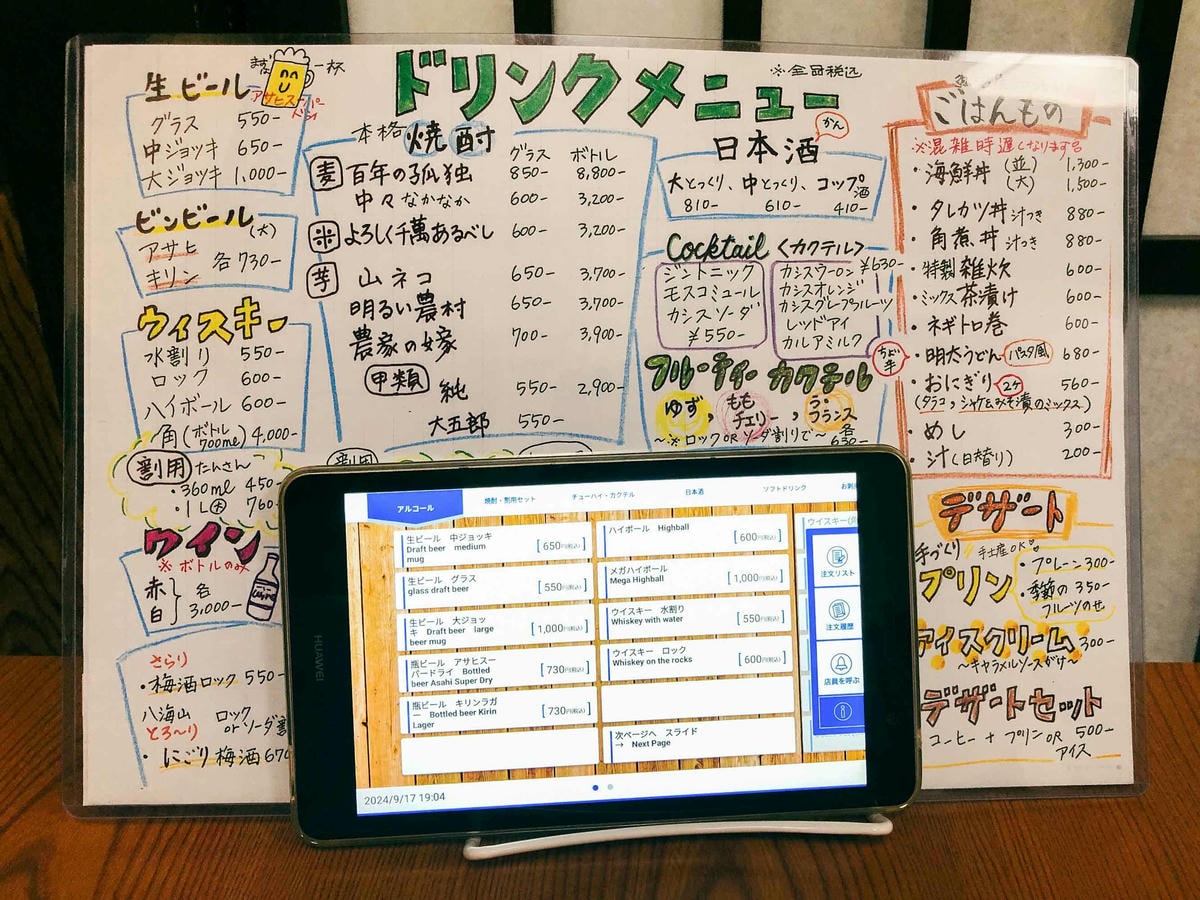 ドリンクメニュー
※全品税込
生ビール
まず一杯
アサヒスーパードライ
グラス 550-
中ジョッキ 650-
大ジョッキ 1,000-
ビンビール(大)
アサヒ
キリン 各730-
ウィスキー
水割り 550-
ロック 600-
ハイボール 600-
角(ボトル700ml) 4,000-
割用 たんさん
・360ml 450-
・1L(大) 760-
ワイン
※ボトルのみ
赤
白 各3,000-
さらり
・梅酒ロック 550-
八海山 ロック
orソーダ割
とろ〜り
・にごり梅酒 670
本格焼酎
グラス ボトル
麦 百年の孤独 850- 8,800-
中々なかなか 600- 3,200-
米 よろしく千萬あるべし 600- 3,200-
芋 山ネコ 650- 3,700-
明るい農村 650- 3,700-
農家の嫁 700- 3,900-
甲類 純 550- 2,900-
大五郎 550-
割用
日本酒
かん
大とっくり、中とっくり、コップ酒
810- 610- 410-
Cocktail <カクテル>
ジントニック
モスコミュール
カシスソーダ
¥550-
カシスウーロン ¥630-
カシスオレンジ
カシスグレープフルーツ
レッドアイ
カルアミルク
フルーティーカクテル
ゆず, ももチェリー, ラ・フランス
〜※ロックORソーダ割りで〜 各630-
ごはんもの
※混雑時遅くなります
・海鮮丼 (並) 1,300-
(大) 1,500-
・タレカツ丼 汁つき 880-
・角煮丼 汁つき 880-
・特製雑炊 600-
・ミックス茶漬け 600-
・ネギトロ巻 600-
ちょい辛
・明太うどん パスタ風 680-
・おにぎり 2ケ 560-
(タラコ,シャケ&みそ漬のミックス)
・めし 300-
・汁(日替り) 200-
デザート
手づくり 手土産OK
プリン
・プレーン 300-
・季節の 350-
フルーツのせ
アイスクリーム 300-
〜キャラメルソースがけ〜
デザートセット
コーヒー + プリン OR アイス 500-
HUAWEI
アルコール
焼酎・割用セット
チューハイ・カクテル
日本酒
ソフトドリンク
生ビール 中ジョッキ
Draft beer medium
mug
[ 650円(税込) ]
生ビール グラス
glass draft beer
[ 550円(税込) ]
生ビール 大ジョッ
キ Draft beer large
beer mug
[ 1,000円(税込) ]
瓶ビール アサヒスー
パードライ Bottled
beer Asahi Super Dry
[ 730円(税込) ]
瓶ビール キリンラガ
ー Bottled beer Kirin
Lager
[ 730円(税込) ]
ハイボール Highball
[ 600円(税込) ]
メガハイボール
Mega Highball
[ 1,000円(税込) ]
ウイスキー 水割り
Whiskey with water
[ 550円(税込) ]
ウイスキー ロック
Whiskey on the rocks
[ 600円(税込) ]
次ページへ スライド
→ Next Page
ウイスキー
注文リスト
注文履歴
店員を呼ぶ
2024/9/17 19:04